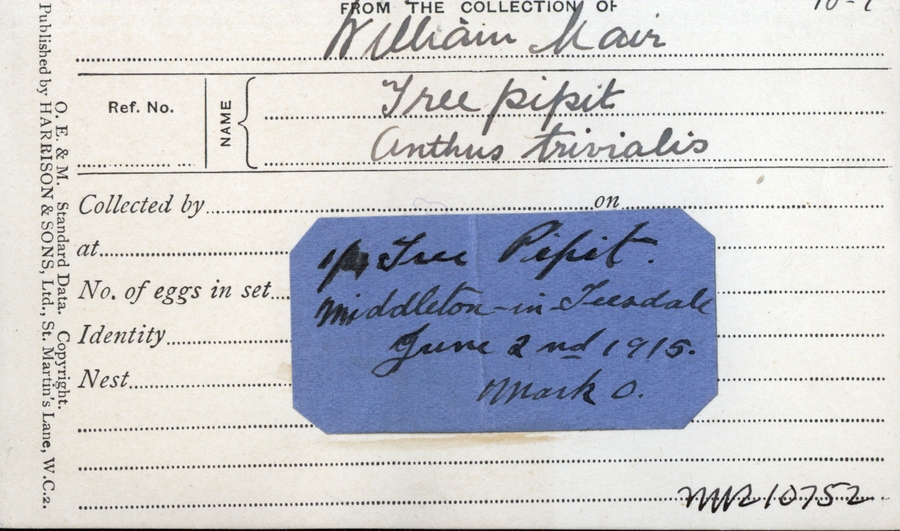 FROM THE COLLECTION OF
William Mair
Ref. No.
NAME
Tree pipit
Anthus trivialis
Collected by
on
at
No. of eggs in set
Identity
Nest
Tree Pipit.
Middleton-in Teesdale
June 2nd 1915.
Mark O.
10752
O. E. & M. Standard Data. Copyright.
Published by HARRISON & SONS, Ltd., St. Martin's Lane, W.C.2.